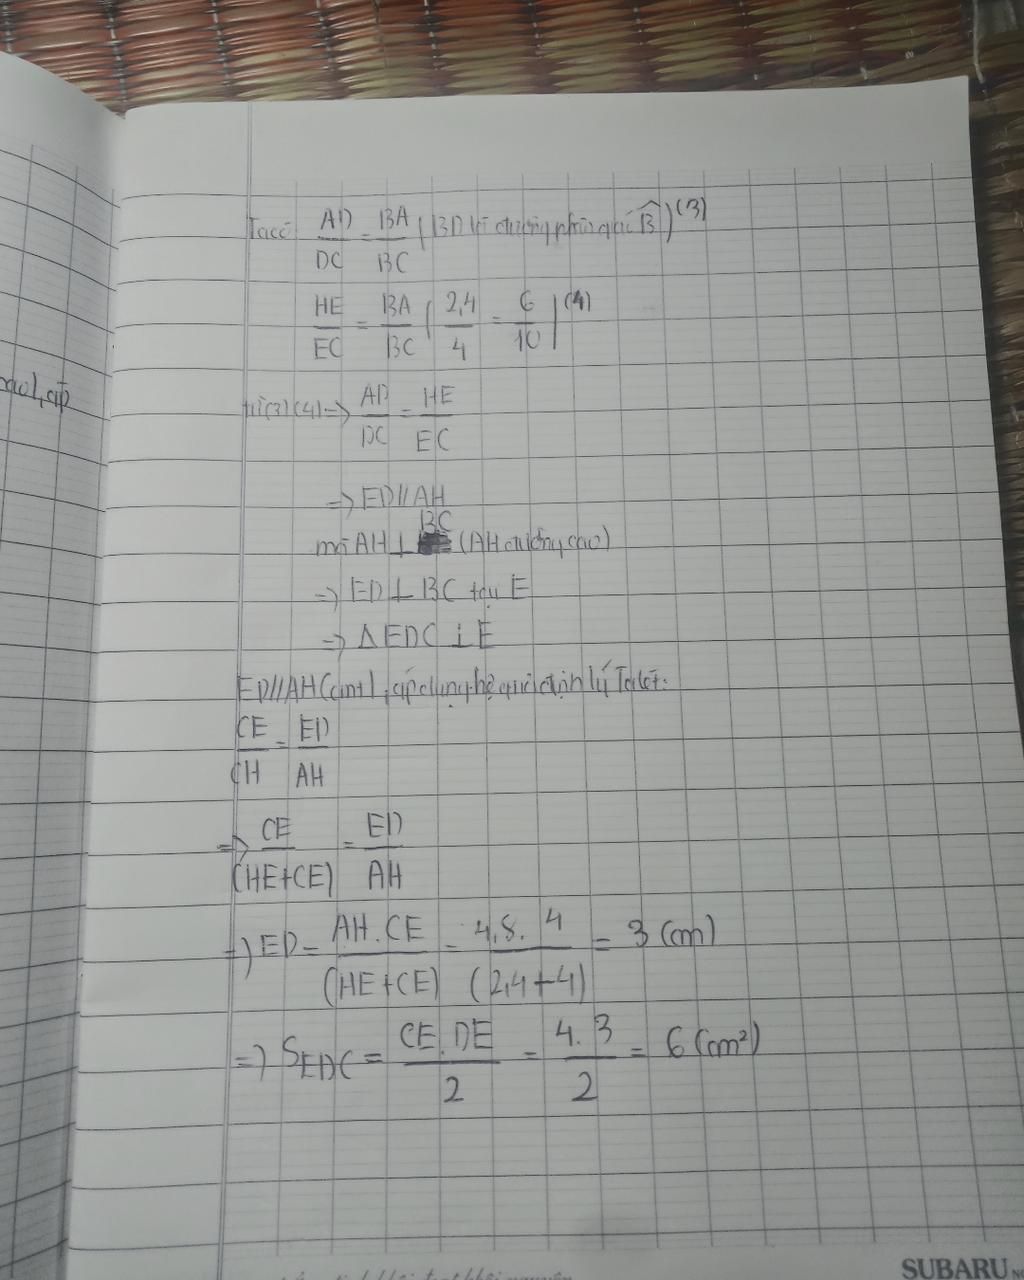 Ta có AD/DC = BA/BC (BD là đường phân giác B̂) (3)
HE/EC = BA/BC (2,4/4 = 6/10) (4)
từ (3) (4) => AD/DC = HE/EC
=> ED // AH
mà AH ⊥ BC (AH đường cao)
=> ED ⊥ BC tại E
=> Δ EDC ⊥ E
ED // AH (cmt), áp dụng hệ quả định lý Talét:
CE/CH = ED/AH
=> CE/(HE+CE) = ED/AH
=> ED = AH.CE/(HE+CE) = 4,8.4/(2,4+4) = 3 (cm)
=> S_EDC = CE.DE/2 = 4.3/2 = 6 (cm²)
SUBARU